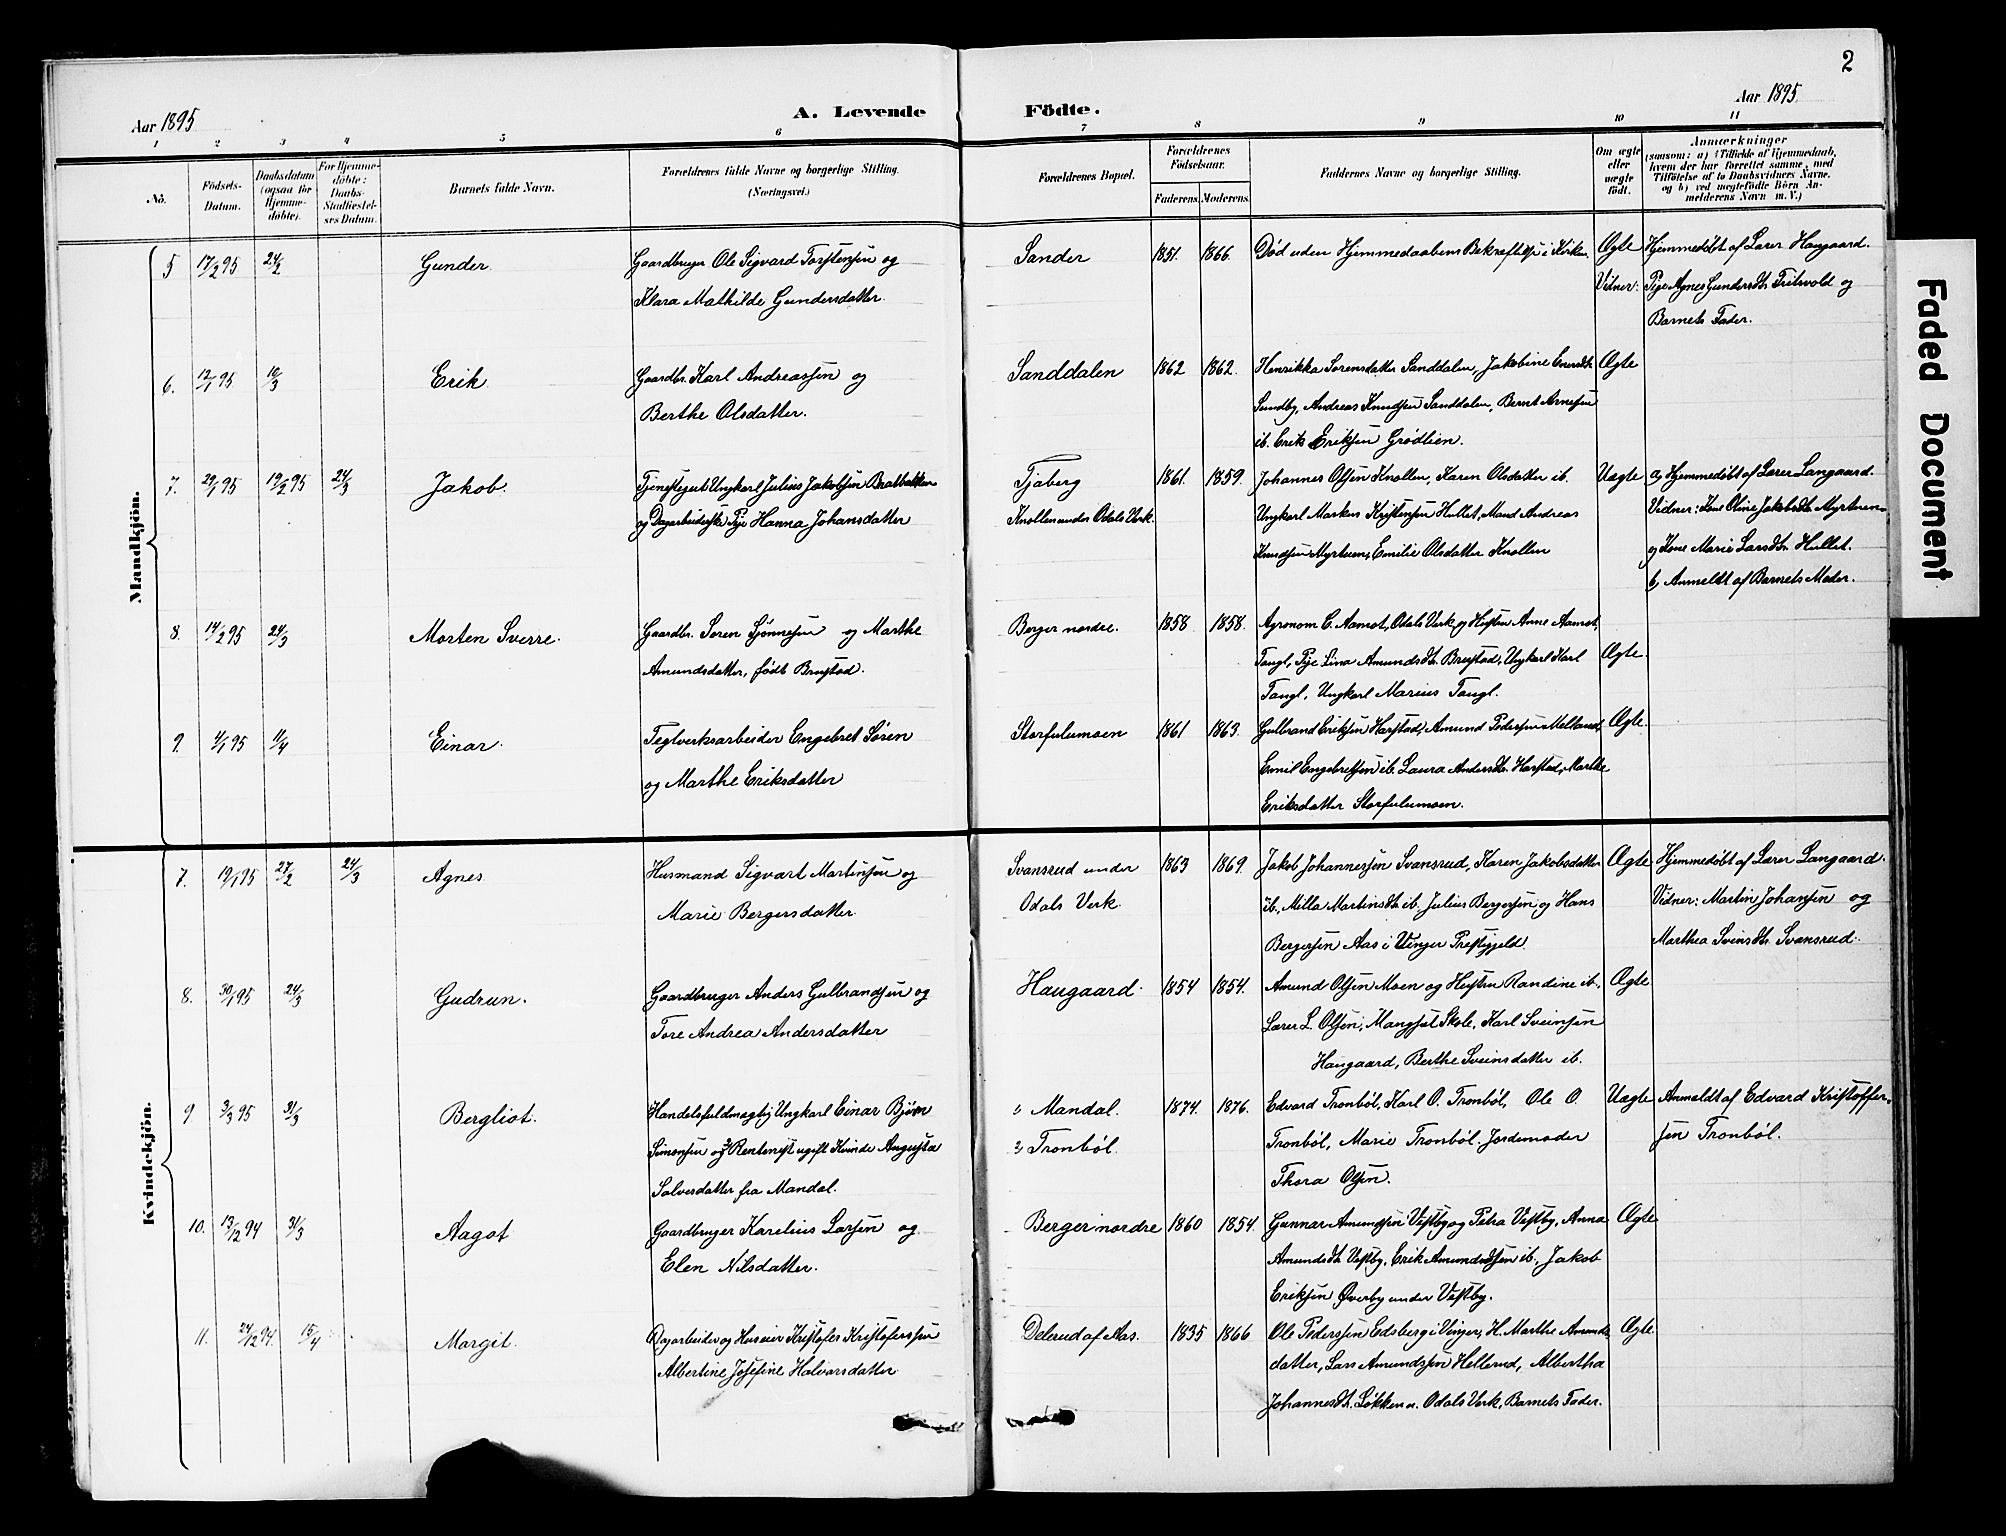 2
Aar 1895
A. Levende Födte.
Aar 1895
1 2 3 4 5 6 7 8 9 10 11
No.
Födsels-Datum.
Daabsdatum (ogsaa for Hjemmedöbte).
For Hjemmedöbte: Daabs-Stadfæstelses Datum.
Barnets fulde Navn.
Forældrenes fulde Navne og borgerlige Stilling. (Næringsvei.)
Forældrenes Bopæl.
Forældrenes Födselsaar.
Faderens. Moderens.
Faddernes Navne og borgerlige Stilling.
Om ægte eller uægte födt.
Anmærkninger
(saasom: a) i Tilfælde af Hjemmedaab, hvem der har forrettet samme, med Tilföielse af to Daabsvidners Navne, og b) ved uægtefödte Börn Anmelderens Navn m. V.)
Mandkjön.
5 17/2 95 24/2 Gunder. Gaardbruger Ole Sigvard Torstensen og Sander 1851. 1866. Død uden Hjemmedaabens Bekræftelse i Kirken. Ægte Hjemmedøbt af Lærer Haugaard.
Klara Mathilde Gundersdatter. Vidner: Pige Agnes Gundersdt. Fritsvold og
Barnets Fader.
6. 12/1 95 10/3 Erik Gaardbr. Karl Andreassen og Sanddalen 1862 1862. Henrikka Sørensdatter Sanddalen, Jakobine Enersdt. Ægte
Berthe Olsdatter. Sundby, Andreas Knudsen Sanddalen, Bernt Arnesen
ib. Erik Eriksen Grødlien.
7. 29/1 95 19/2 95 24/3 Jakob. Tjenestegut Ungkarl Julius Jakobsen Bratbakken Tjaberg 1861. 1859. Johannes Olsen Knollen, Karen Olsdatter ib. Uægte a) Hjemmedøbt af Lærer Langaard.
og Dagarbeiderske Pige Hanna Johansdatter Knollen under Odals Verk. Ungkarl Markus Kristensen Hullet, Mand Andreas Vidner: Kone Oline Jakobsdt. Myrtuen
Knudsen Myrtuen, Emilie Olsdatter Knollen og Kone Marie Larsdt. Hullet.
b) Anmeldt af Barnets Moder.
8. 14/2 95 24/3 Morten Sverre. Gaardbr. Søren Sjønnesen og Marthe Berger nordre. 1858 1858. Agronom C. Aamot, Odals Verk og Hustru Anne Aamot,
Amundsdatter, født Brustad. Tangl, Pige Lina Amundsdt. Brustad, Ungkarl Karl Ægte.
Tangl, Ungkarl Marius Tangl.
9. 4/1 95 11/4 Einar. Teglverksarbeider Engebret Søren Storfulumoen 1861 1863. Gulbrand Eriksen Harstad, Amund Pedersen Melland, Ægte.
og Marthe Eriksdatter Emil Engebretsen ib. Laura Andersdt. Harstad, Marthe
Eriksdatter Storfulumoen.
Kvindekjön.
7. 19/1 95 27/2 24/3 Agnes Husmand Sigvart Martinsen og Svansrud under 1863 1869. Jakob Johannessen Svansrud, Karen Jakobsdatter Ægte Hjemmedøbt af Lærer Langaard.
Marie Bergersdatter. Odals Verk. ib., Milla Martinsdt. ib. Julius Bergersen og Hans Vidner: Martin Johansen og
Bergersen Aas i Vinger Prestegjeld. Marthea Svensdt. Svansrud.
8. 30/1 95 24/3 Gudrun. Gaardbruger Anders Gulbrandsen og Haugaard. 1854 1854. Amund Olsen Moen og Hustru Randine ib., Ægte
Tore Andrea Andersdatter Lærer L. Olsen, Mangset Skole, Karl Sveinsen
Haugaard, Berthe Sveinsdatter ib.
9 3/3 95 31/3 Bergliot. Handelsfuldmægtig Ungkarl Einar Bjørn 1) Mandal. 1874. 1876. Edvard Tronbøl, Karl O. Tronbøl, Ole O. Uægte Anmeldt af Edvard Kristoffer-
Simonsen og Rentenist ugift Kvinde Augusta 2) Tronbøl. Tronbøl, Marie Tronbøl. Jordemoder sen Tronbøl.
Salvesdatter fra Mandal. Thora Olsen.
10. 13/12 94 31/3 Aagot Gaardbruger Karelius Larsen og Berger nordre 1860 1854. Gunnar Amundsen Vestby og Petra Vestby, Anna Ægte
Elen Nilsdatter. Amundsdt. Vestby, Erik Amundsen ib. Jakob
Eriksen Øverby under Vestby.
11. 24/12 94 15/4 Margit. Dagarbeider og Huseier Kristofer Kristofersen Delerud af Aas. 1835 1866 Ole Pederssen Edsberg i Vinger, H. Marthe Amunds Ægte.
Albertine Josefine Halvorsdatter datter, Lars Amundssen Hellerud, Albertha
Johannesdt. Løkken u. Odals Verk, Barnets Fader.
Faded Document